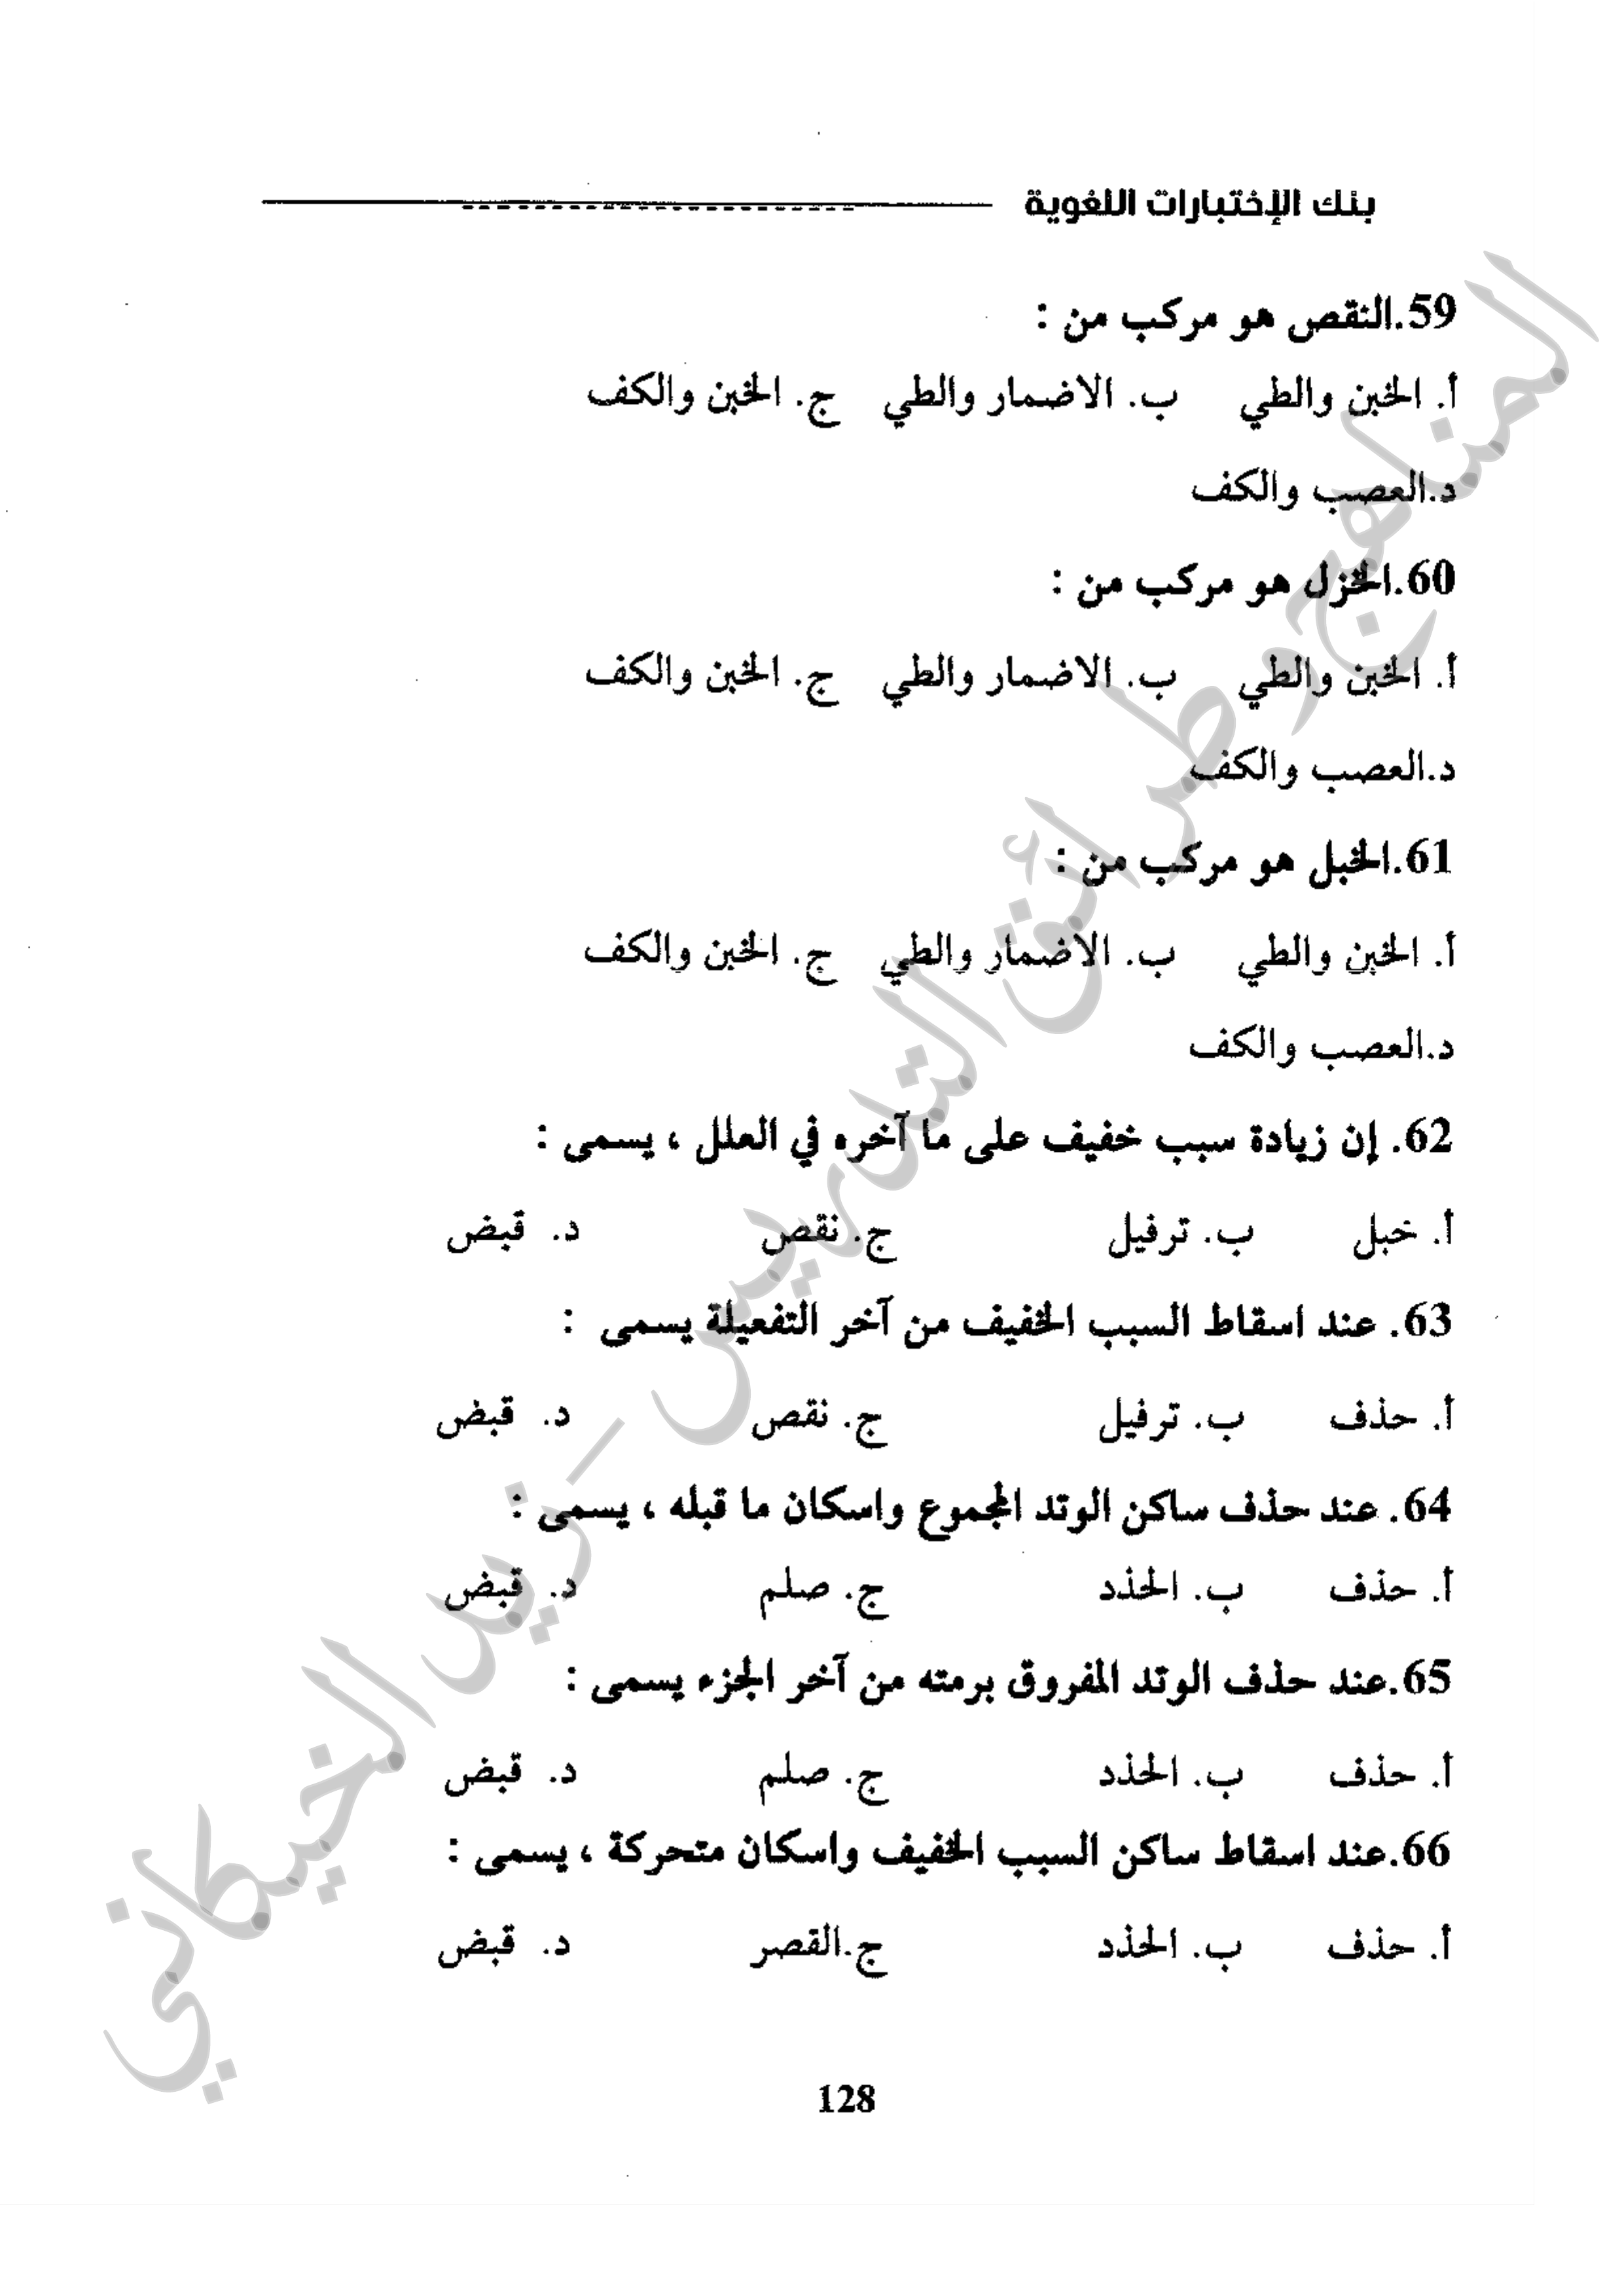 بنك الإختبارات اللغوية
59.النقص هو مركب من :
أ. الخبن والطي ب. الاضمار والطي ج. الخبن والكف
د.العصب والكف
60.الخزل هو مركب من :
أ. الخبن والطي ب. الاضمار والطي ج. الخبن والكف
د.العصب والكف
61.الخبل هو مركب من :
أ. الخبن والطي ب. الاضمار والطي ج. الخبن والكف
د.العصب والكف
62. إن زيادة سبب خفيف على ما آخره في العلل ، يسمى :
أ. خبل ب. ترفيل ج. نقص د. قبض
63. عند اسقاط السبب الخفيف من آخر التفعيلة يسمى :
أ. حذف ب. ترفيل ج. نقص د. قبض
64. عند حذف ساكن الوتد المجموع واسكان ما قبله ، يسمى :
أ. حذف ب. الحذد ج. صلم د. قبض
65.عند حذف الوتد المفروق برمته من آخر الجزء يسمى :
أ. حذف ب. الحذد ج. صلم د. قبض
66.عند اسقاط ساكن السبب الخفيف واسكان متحركة ، يسمى :
أ. حذف ب. الحذد ج.القصر د. قبض
128
المناهج وطرائق التدريس - زيد الخيكاني